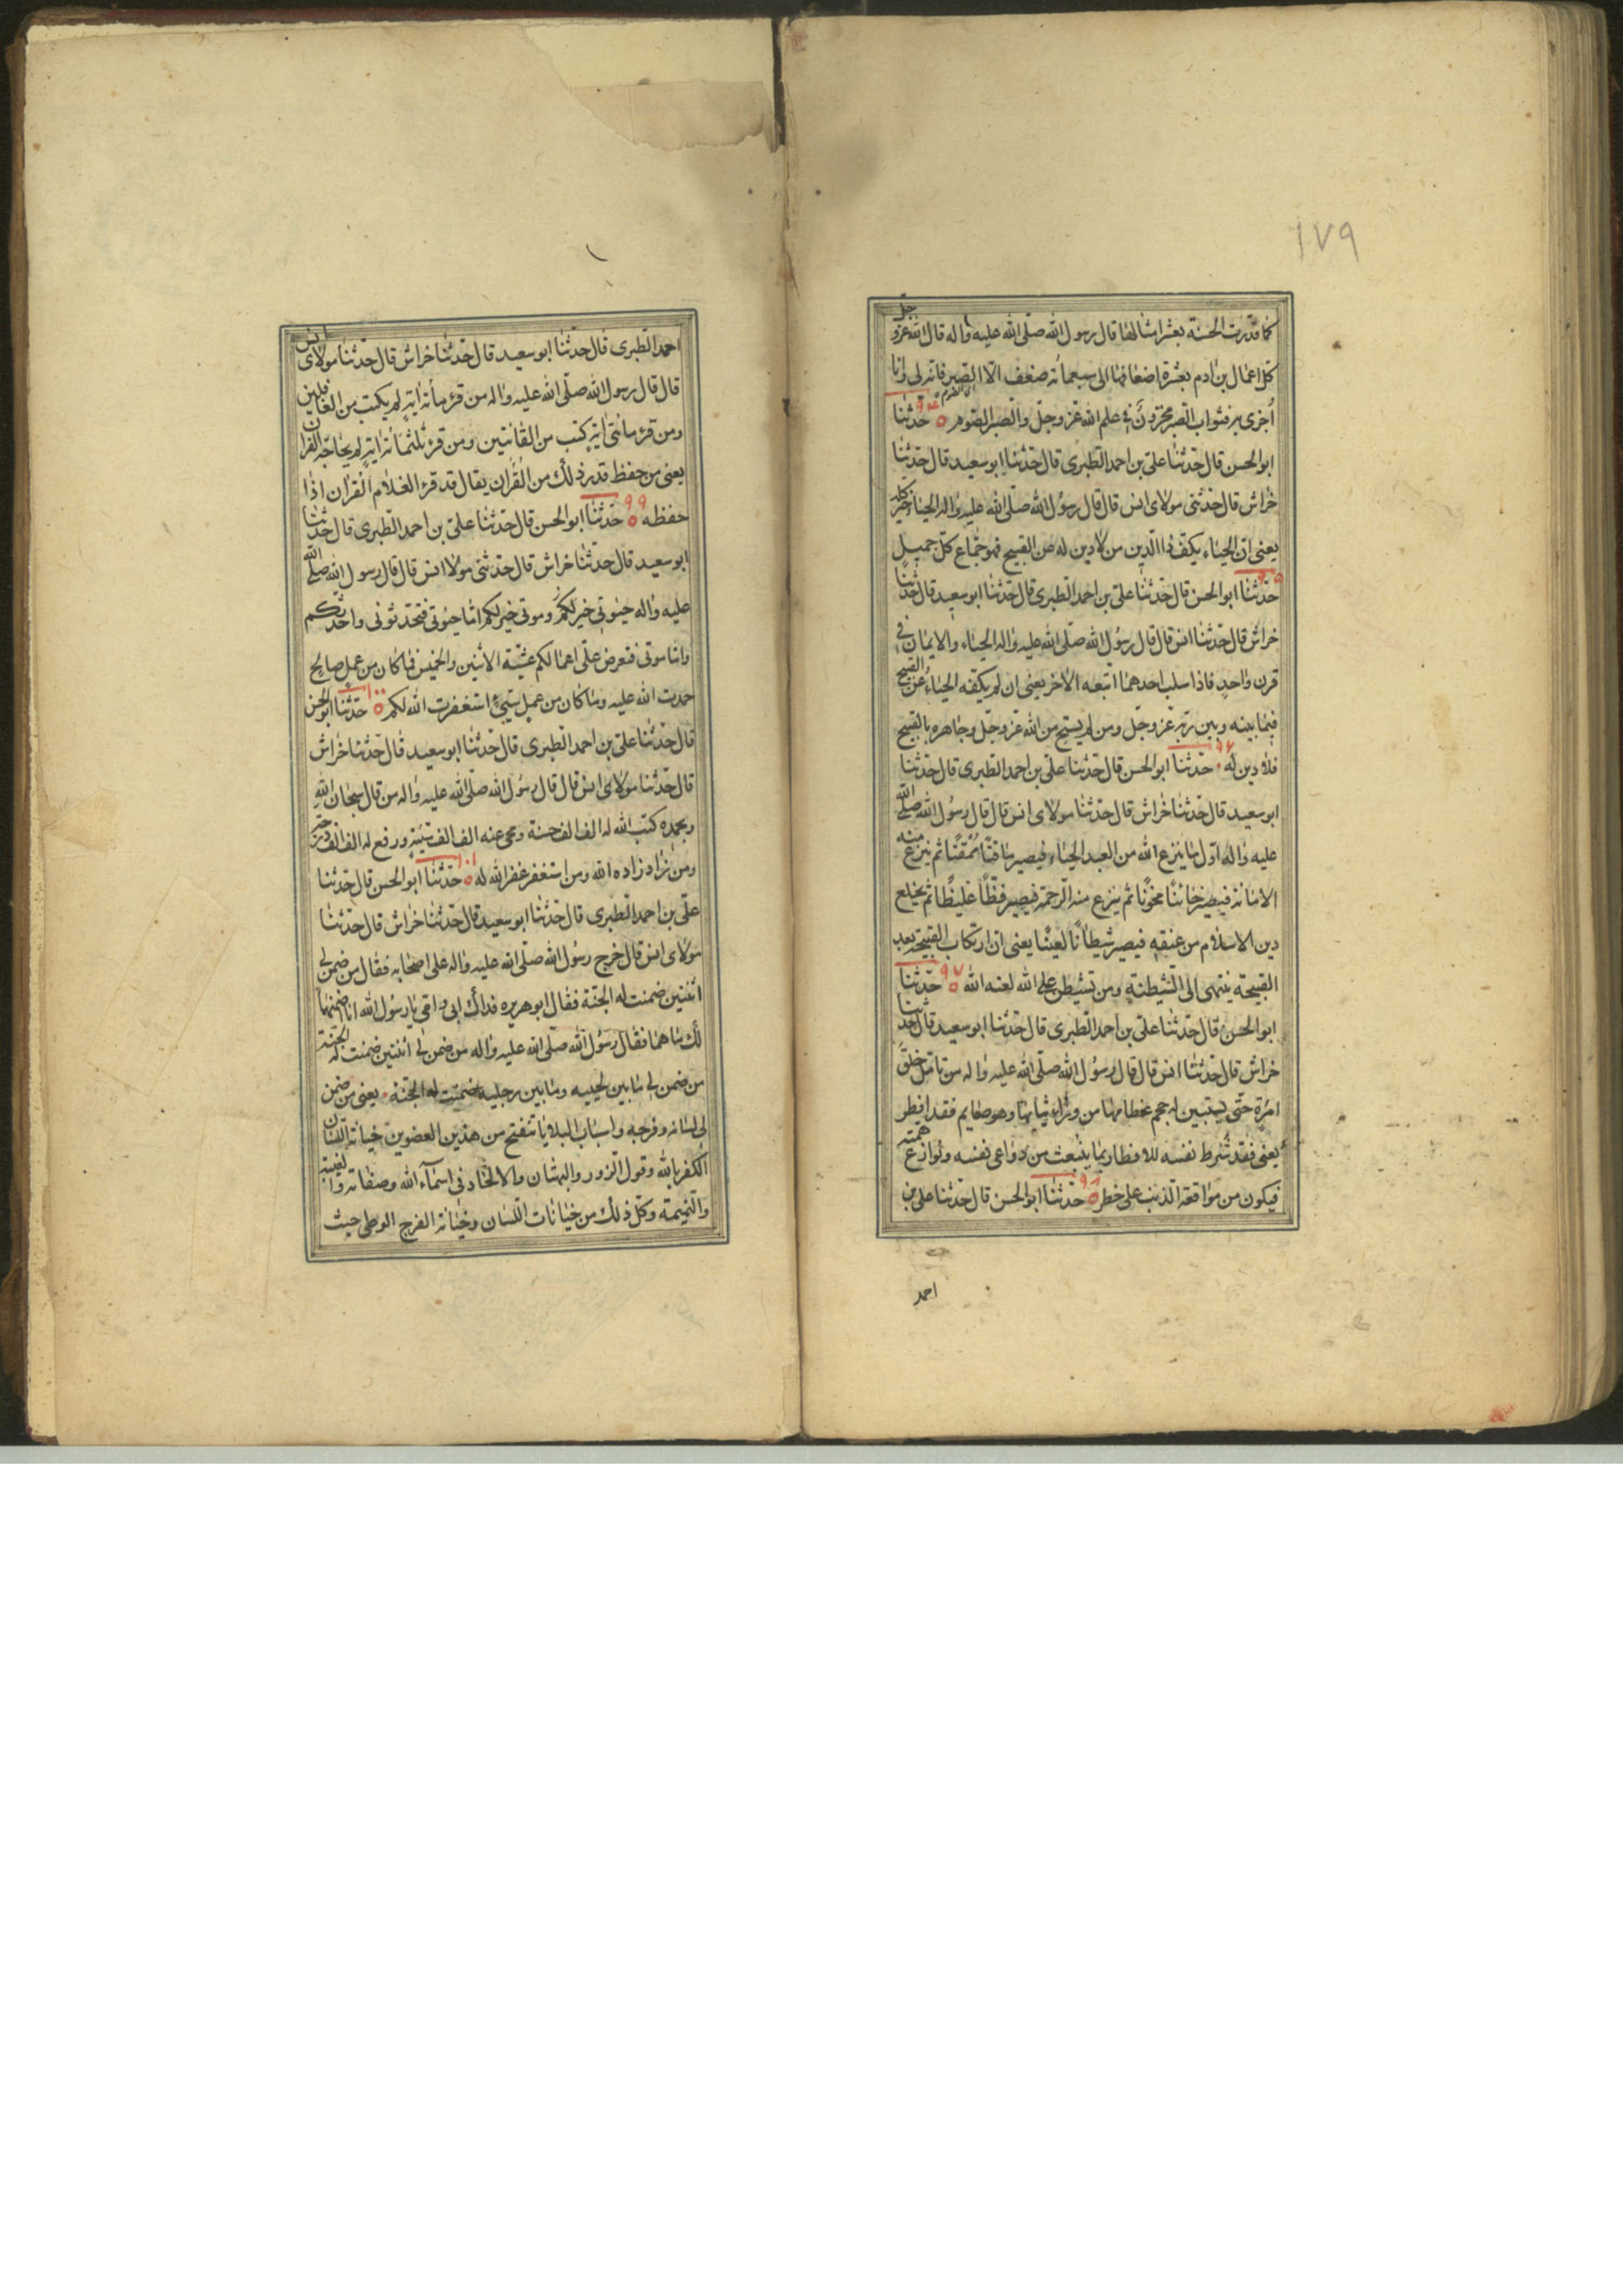 ١٧٩
كما قدرت الحسنة بعشر امثالها قال رسول الله صلّى الله عليه واله قال الله عزّ و جلّ
كلّ اعمال بن ادم بعشرة اضعافها الى سبعمائه ضعف الّا الصبر فانه لى وانا
اُجزى به فثواب الصّبر مخزون فى علم الله عزّ وجلّ والصّبر الصّوم ٥ ٩٤ حدّثنا
ابو الحسن قال حدّثنا علىّ بن احمد الطّبرى قال حدّثنا ابو سعيد قال حدثنا
خراش قال حدّثنى مولاى انس قال قال رسول الله صلّى الله عليه واله الحياء خير كله
يعنى انّ الحياء يكفّ ذا الدّين من لا دين له عن القبيح فهو جماع كلّ جميل
٩٥ حدّثنا ابو الحسن قال حدّثنا علىّ بن احمد الطبرى قال حدّثنا ابو سعيد قال حدثنا
خراش قال حدّثنا انس قال قال رسول الله صلّى الله عليه واله الحياء والايمان فى
قرن واحدٍ فاذا سلب احدهما اتبعه الاخر يعنى ان لم يكفّه الحياء عن القبيح
فيما بينه وبين ربّه عزّ وجلّ ومن لم يستح من الله عزّ وجلّ وجاهره بالقبيح
فلا دين له ٩٦ حدّثنا ابو الحسن قال حدّثنا علىّ بن احمد الطبرى قال حدّثنا
ابو سعيد قال حدّثنا خراش قال حدّثنا مولاى انس قال قال رسول الله صلّى الله
عليه واله اوّل ما ينزع الله من العبد الحياء فيصير ماقتًا مُمَقّتًا ثم ينزع منه
الامانة فيصير خائنًا مخوّنًا ثمّ ينزع منه الرّحمة فيصير فظًّا غليظًا ثمّ يخلع
دين الاسلام من عنقه فيصير شيطانًا لعينًا يعنى ان ارتكاب القبيحة بعد
القبيحة ينتهى الى الشّيطنة ومن تشيطن على الله لعنه الله ٥ ٩٧ حدّثنا
ابو الحسن قال حدّثنا علىّ بن احمد الطّبرى قال حدّثنا ابو سعيد قال حدثنا
خراش قال حدّثنا انس قال قال رسول الله صلّى الله عليه واله من تامّل خلق
امرةٍ حتّى يستبين له حجم عظامها من وراء ثيابها وهو صايم فقد افطر
يعنى فقد شُرط نفسه للافطار بما ينبعث من دواعى نفسه ونوازع همته
فيكون من مواقعة الذنب على خطر ٥ ٩٨ حدّثنا ابو الحسن قال حدّثنا على بن
احمد
احمد الطّبرى قال حدّثنا ابو سعيد قال حدّثنا خراش قال حدّثنا مولاى انس
قال قال رسول الله صلّى الله عليه واله من قرء مائة اية لم يكتب من الغافلين
ومن قرء مائتى اية كتب من القانتين ومن قرء ثلثمائة ايةٍ لم يحاجّه القران
يعنى من حفظ قدر ذلك من القُران يقال قد قرء الغلام القران اذا
حفظه ٥ ٩٩ حدّثنا ابو الحسن قال حدّثنا علىّ بن احمد الطّبرى قال حدّثنا
ابو سعيد قال حدّثنا خراش قال حدّثنى مولاا انس قال قال رسول الله صلّى الله
عليه واله حيوتى خير لكم وموتى خير لكم امّا حيوتى فتحدّثونى واحدّثكم
وامّا موتى فتعرض علىّ اعمالكم عشيّة الاثنين والخميس فما كان من عملٍ صالحٍ
حمدت الله عليه وما كان من عملٍ سيّئٍ استغفرت الله لكم ٥ ١٠٠ حدّثنا ابو الحسن
قال حدّثنا علىّ بن احمد الطبرى قال حدّثنا ابو سعيد قال حدّثنا خراش
قال حدّثنا مولاى انس قال قال رسول الله صلّى الله عليه واله من قال سبحان الله
وبحمده كتب الله له الف الف حسنة ومحى عنه الف الف سيّئةٍ ورفع له الف الف درجة
ومن زاد زاده الله ومن استغفر غفر الله له ٥ ١٠١ حدّثنا ابو الحسن قال حدّثنا
علىّ بن احمد الطبرى قال حدّثنا ابو سعيد قال حدّثنا خراش قال حدّثنا
مولاى انس قال خرج رسول الله صلّى الله عليه واله على اصحابه فقال من ضمن لى
اثنتين ضمنت له الجنّة فقال ابو هريره فداك ابى وامّى يا رسول الله انا اضمنها
لك ما هما فقال رسول الله صلّى الله عليه واله من ضمن لى اثنتين ضمنت له الجنّة
من ضمن لى ما بين لحييه وما بين رجليه ضمنت له الجنّة يعنى من ضمن
لى لسانه وفرجه واسباب البلايا تنفتح من هذين العضوين خيانة اللّسان
الكفر بالله وقول الزّور والبهتان والالحاد فى اسماء الله وصفاته والغيبة
والنّميمة وكلّ ذلك من خيانات اللّسان وخيانة الفرج الوطى حيث